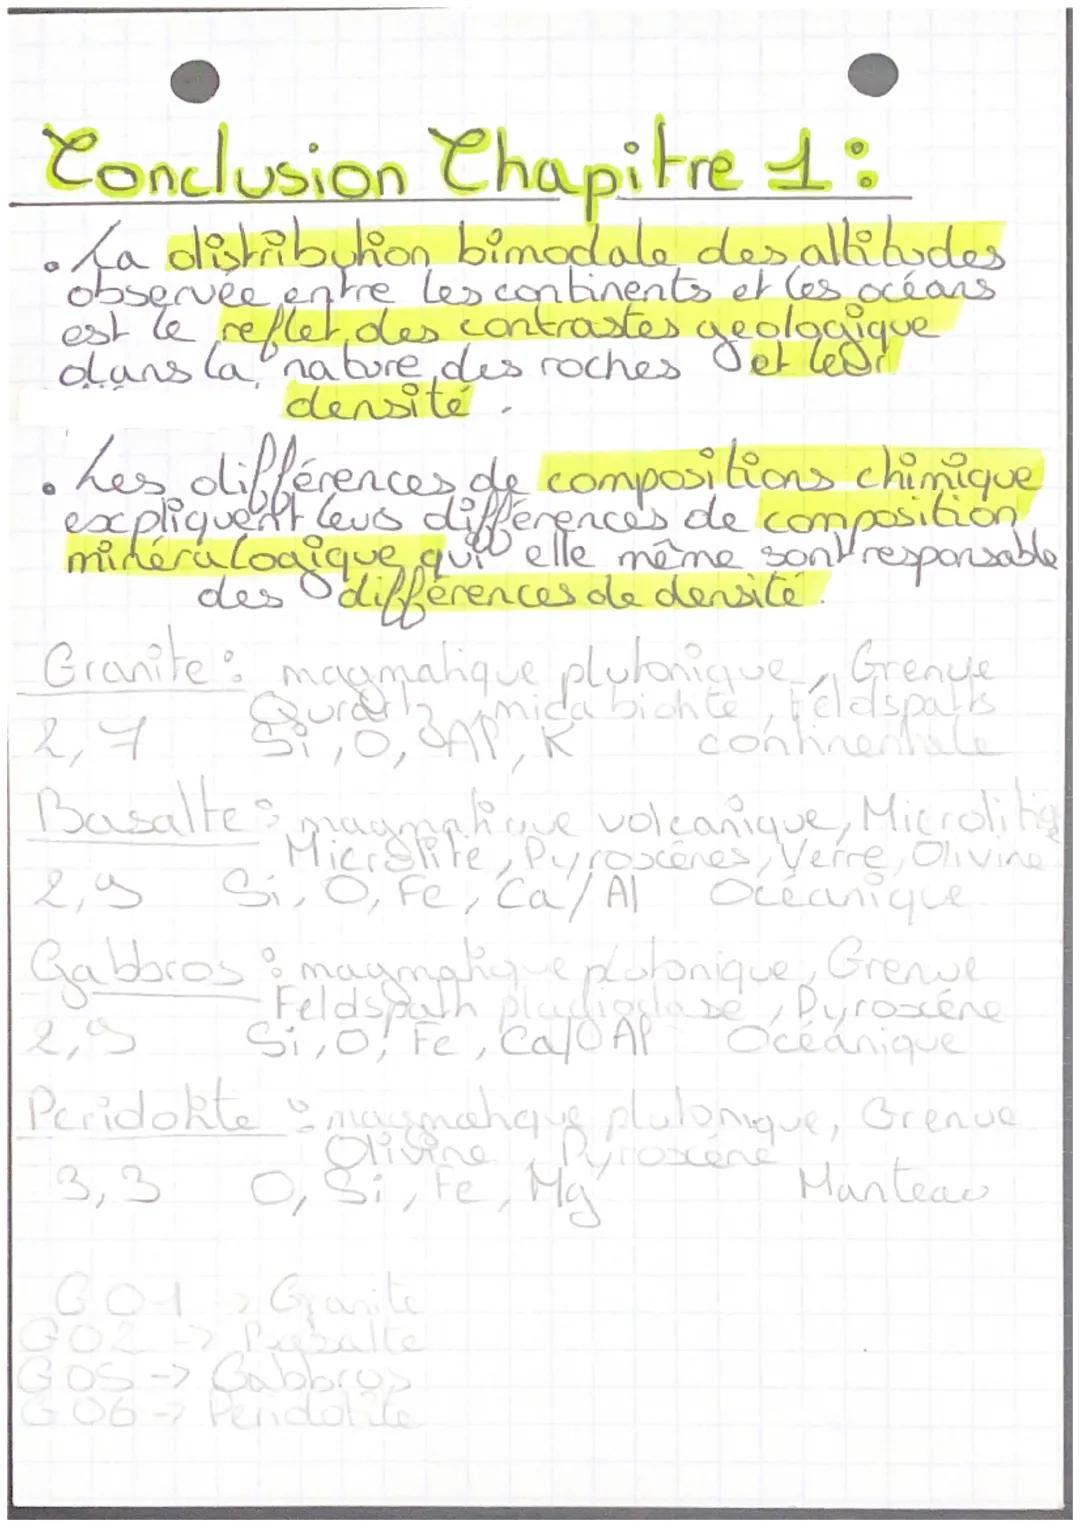 Conclusion Chapitre 1 :
• La distribution bimodale des altitudes
observée entre les continents et les océans
est le reflet des contrastes geologique
dans la nature des roches et leur
densité.
• Les différences de compositions chimique
expliquent leus différences de composition
minéralogique qui elle même sont responsable
des différences de densité.
Granite : magmatique plutonique, Grenue
Qurartz, mica biotite, Feldspaths
2,7 Si, O, Al, K continentale
Basalte : magmatique volcanique, Microlitiq
Microlite, Pyroxénes, Verre, Olivine
2,9 Si, O, Fe, Ca/Al Océanique
Gabbros : magmatique plutonique, Grenue
Feldspath plagioclase, Pyroxéne
2,9 Si, O, Fe, Ca/Al Océanique
Peridotite : magmatique plutonique, Grenue
Olivine, Pyroxéne
3,3 O, Si, Fe, Mg Manteau
G01 -> Granite
G02 -> Basalte
G05 -> Gabbros
G06 -> Peridotite